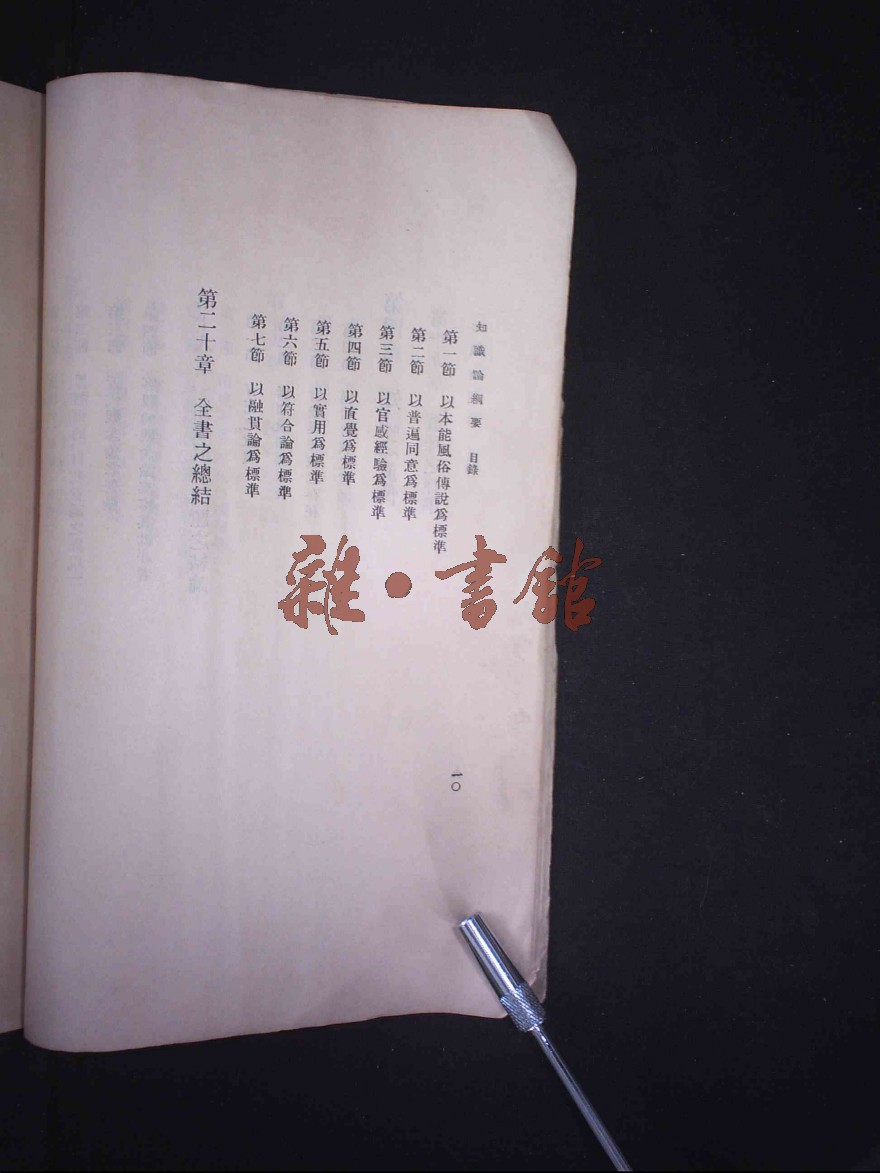 知識論綱要 目錄
第一節 以本能風俗傳說爲標準
第二節 以普遍同意爲標準
第三節 以官感經驗爲標準
第四節 以直覺爲標準
第五節 以實用爲標準
第六節 以符合論爲標準
第七節 以融貫論爲標準
第二十章 全書之總結
一〇
雜·書館